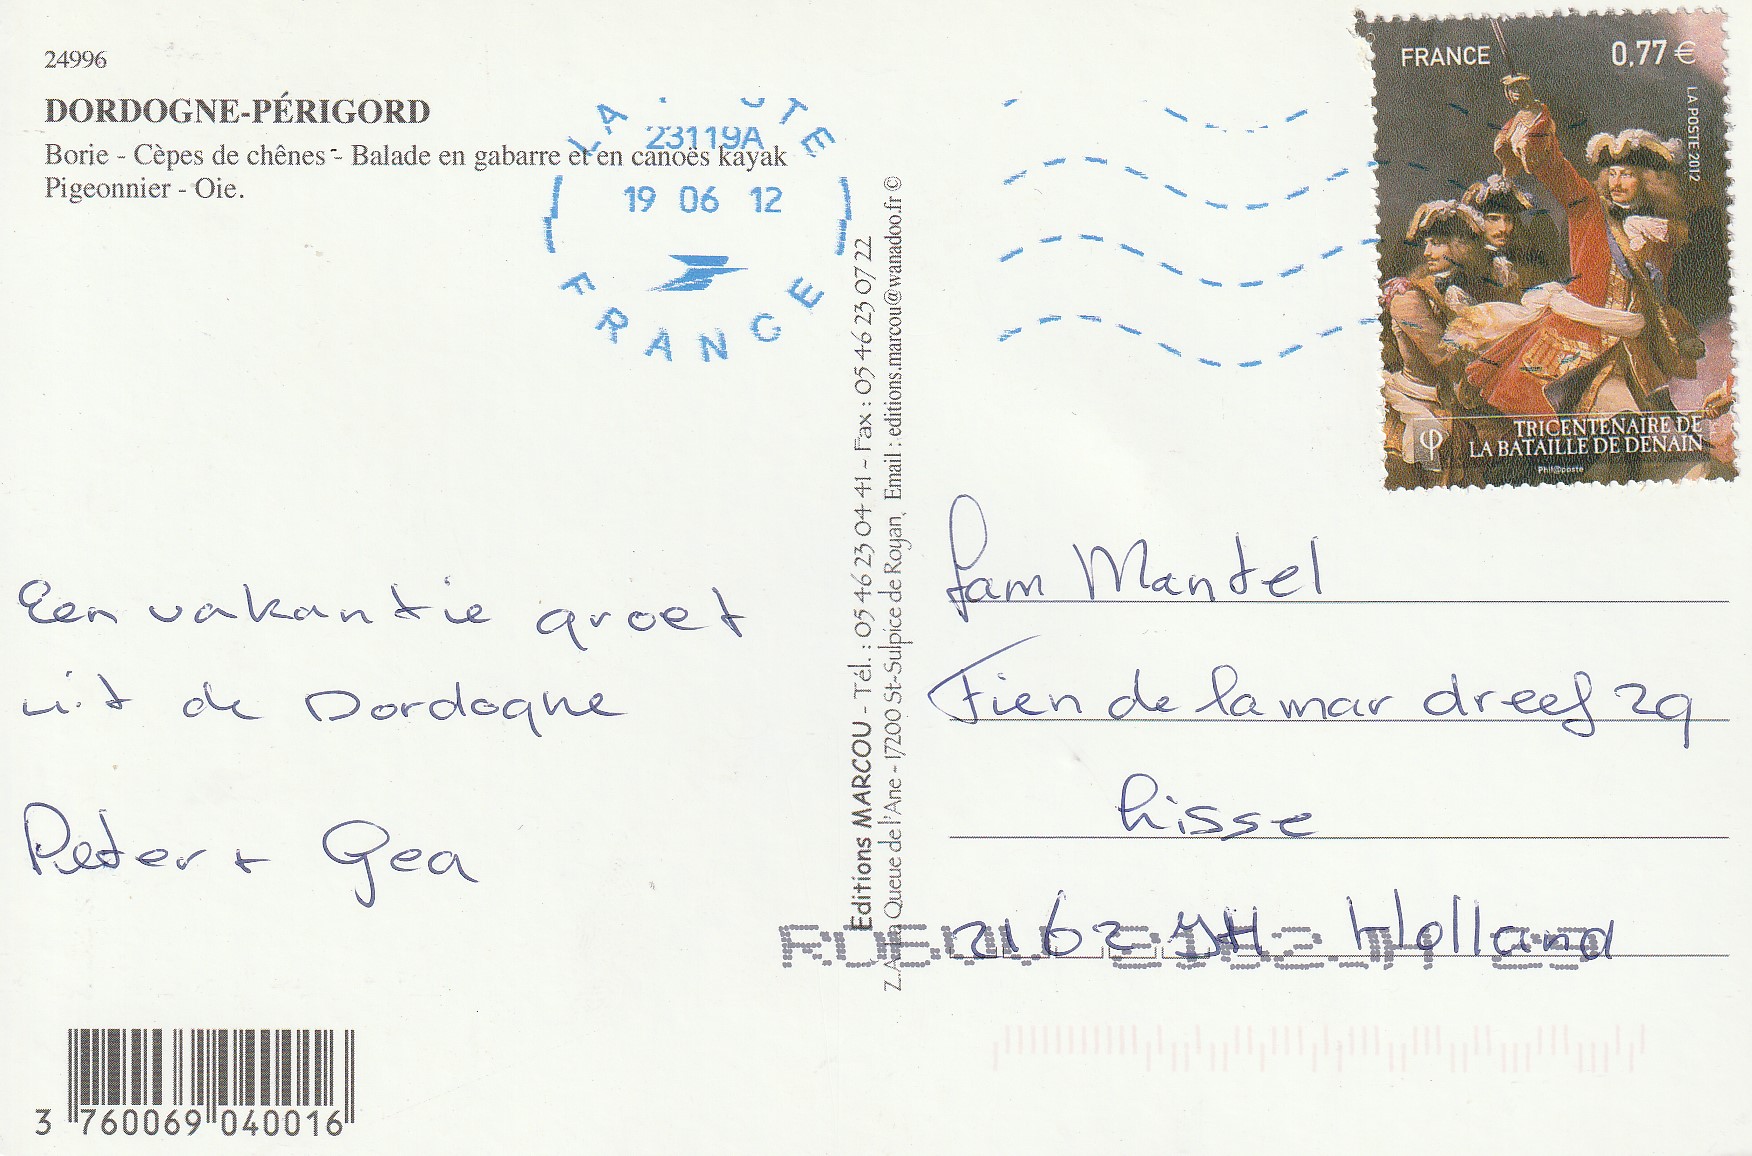 24996
DORDOGNE-PÉRIGORD
Borie - Cèpes de chênes - Balade en gabarre et en canoës kayak
Pigeonnier - Oie.
LA POSTE
23119A
19 06 12
FRANCE
FRANCE 0,77 €
LA POSTE 2012
TRICENTENAIRE DE
LA BATAILLE DE DENAIN
Phil@poste
Een vakantie groet
uit de Dordogne
Peter + Gea
Editions MARCOU - Tél. : 05 46 23 04 41 - Fax : 05 46 23 07 22
Queue de l'Ane - 17200 St-Sulpice de Royan, Email : editions.marcou@wanadoo.fr ©
fam Mantel
Fien de la mar dreef 29
Lisse
2162 JH Holland
3 760069 040016